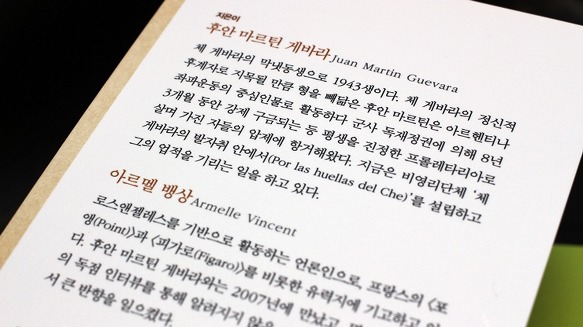 지은이
후안 마르틴 게바라 Juan Martin Guevara
체 게바라의 막냇동생으로 1943생이다. 체 게바라의 정신적
후계자로 지목될 만큼 형을 빼닮은 후안 마르틴은 아르헨티나
좌파운동의 중심인물로 활동하다 군사 독재정권에 의해 8년
3개월 동안 강제 구금되는 등 평생을 진정한 프롤레타리아로
살며 가진 자들의 압제에 항거해왔다. 지금은 비영리단체 ‘체
게바라의 발자취 안에서(Por las huellas del Che)’를 설립하고
그의 업적을 기리는 일을 하고 있다.
아르멜 뱅상 Armelle Vincent
로스앤젤레스를 기반으로 활동하는 언론인으로, 프랑스의 〈포
앵(Point)〉과 〈피가로(Figaro)〉를 비롯한 유력지에 기고하고 있
다. 후안 마르틴 게바라와는 2007년에 만났고,
의 독점 인터뷰를 통해 알려지지 않은
서 큰 반향을 일으켰다.